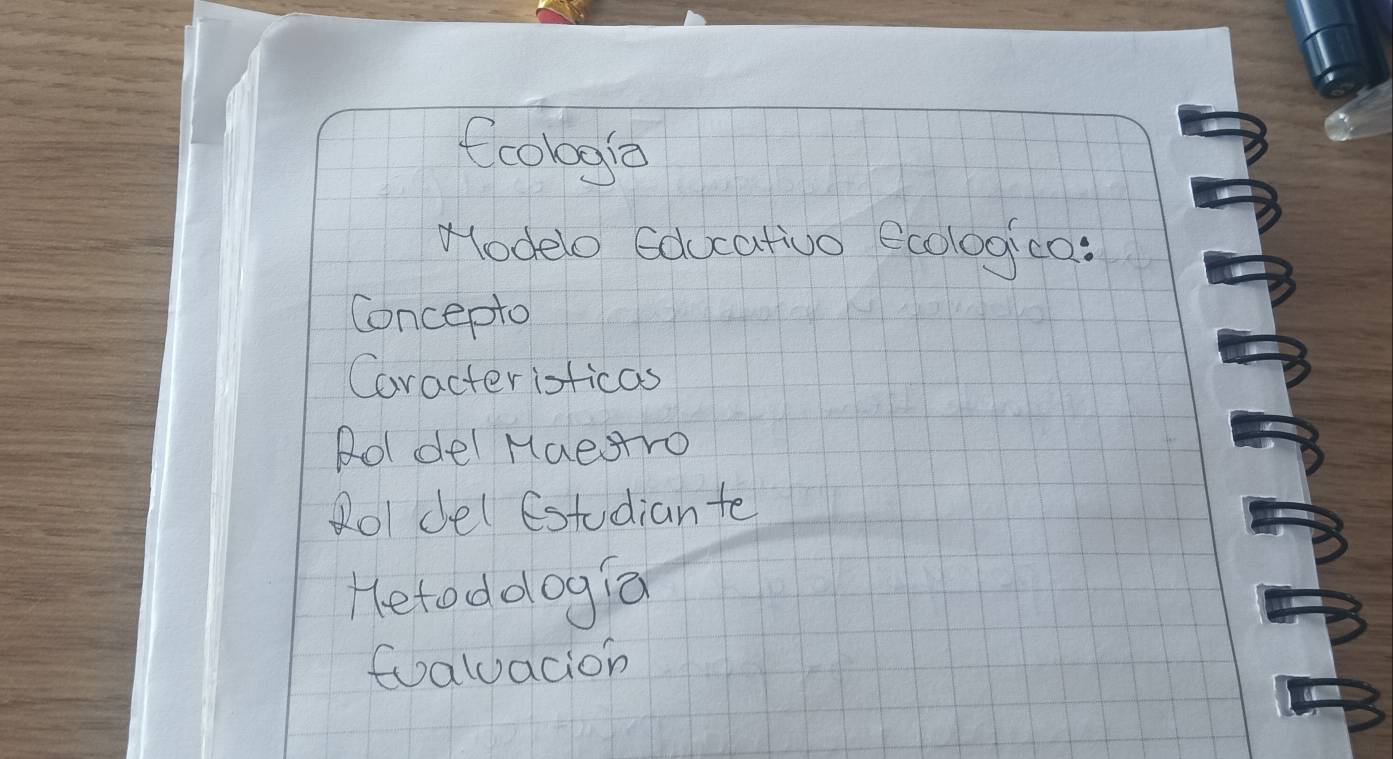 Ecología
Modelo Educativo Ecologíco:
Concepto
Caracteristicas
Rol del Maestro
Rol del Estudiante
Metodología
Evaluación